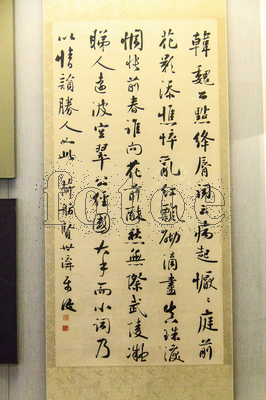 韓魏公點絳脣詞云病起懨々庭前
花影添憔悴亂紅飄砌滴盡真珠淚
惆悵前春誰向花前醉愁無際武陵凝
睇人遠波空翠公經國大手而小詞乃
以情韻勝人如此
fotoe